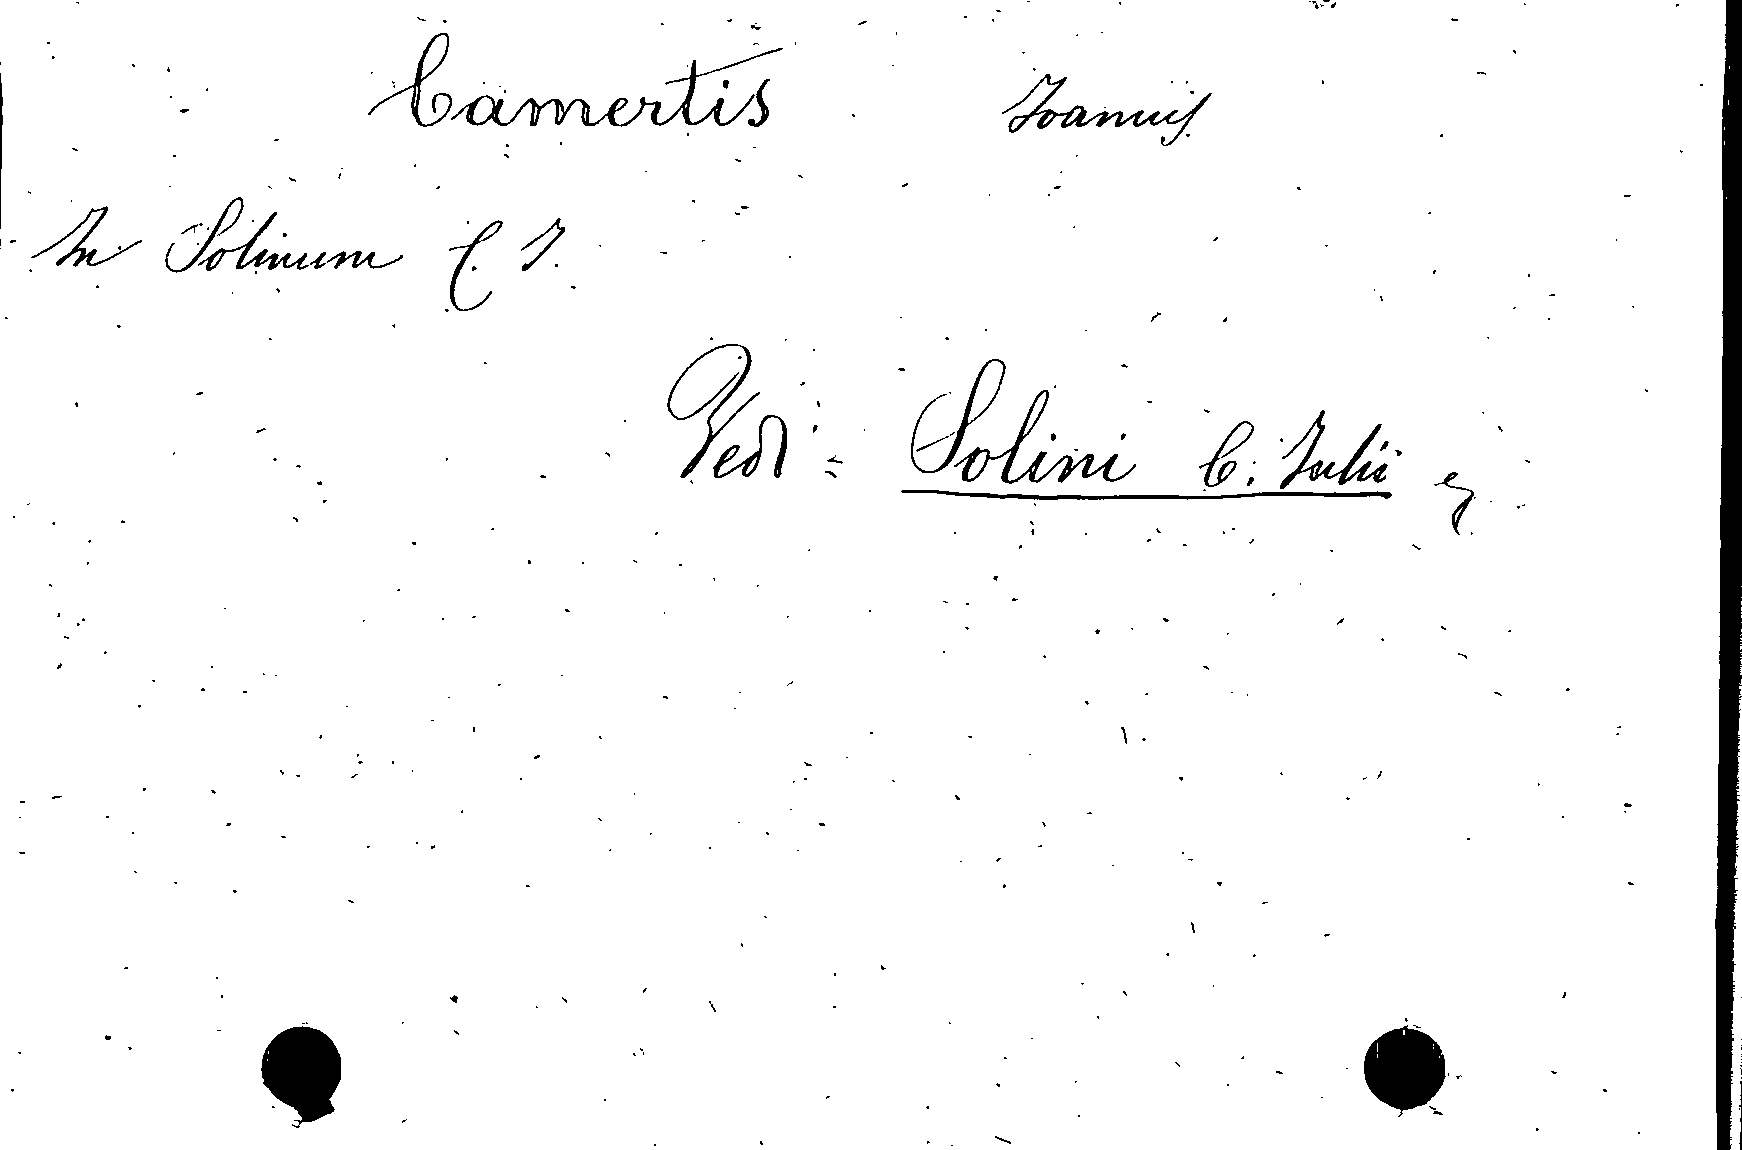 Camertis Joannis
In Solinum C. J.
Vedi = Solini C. Julii